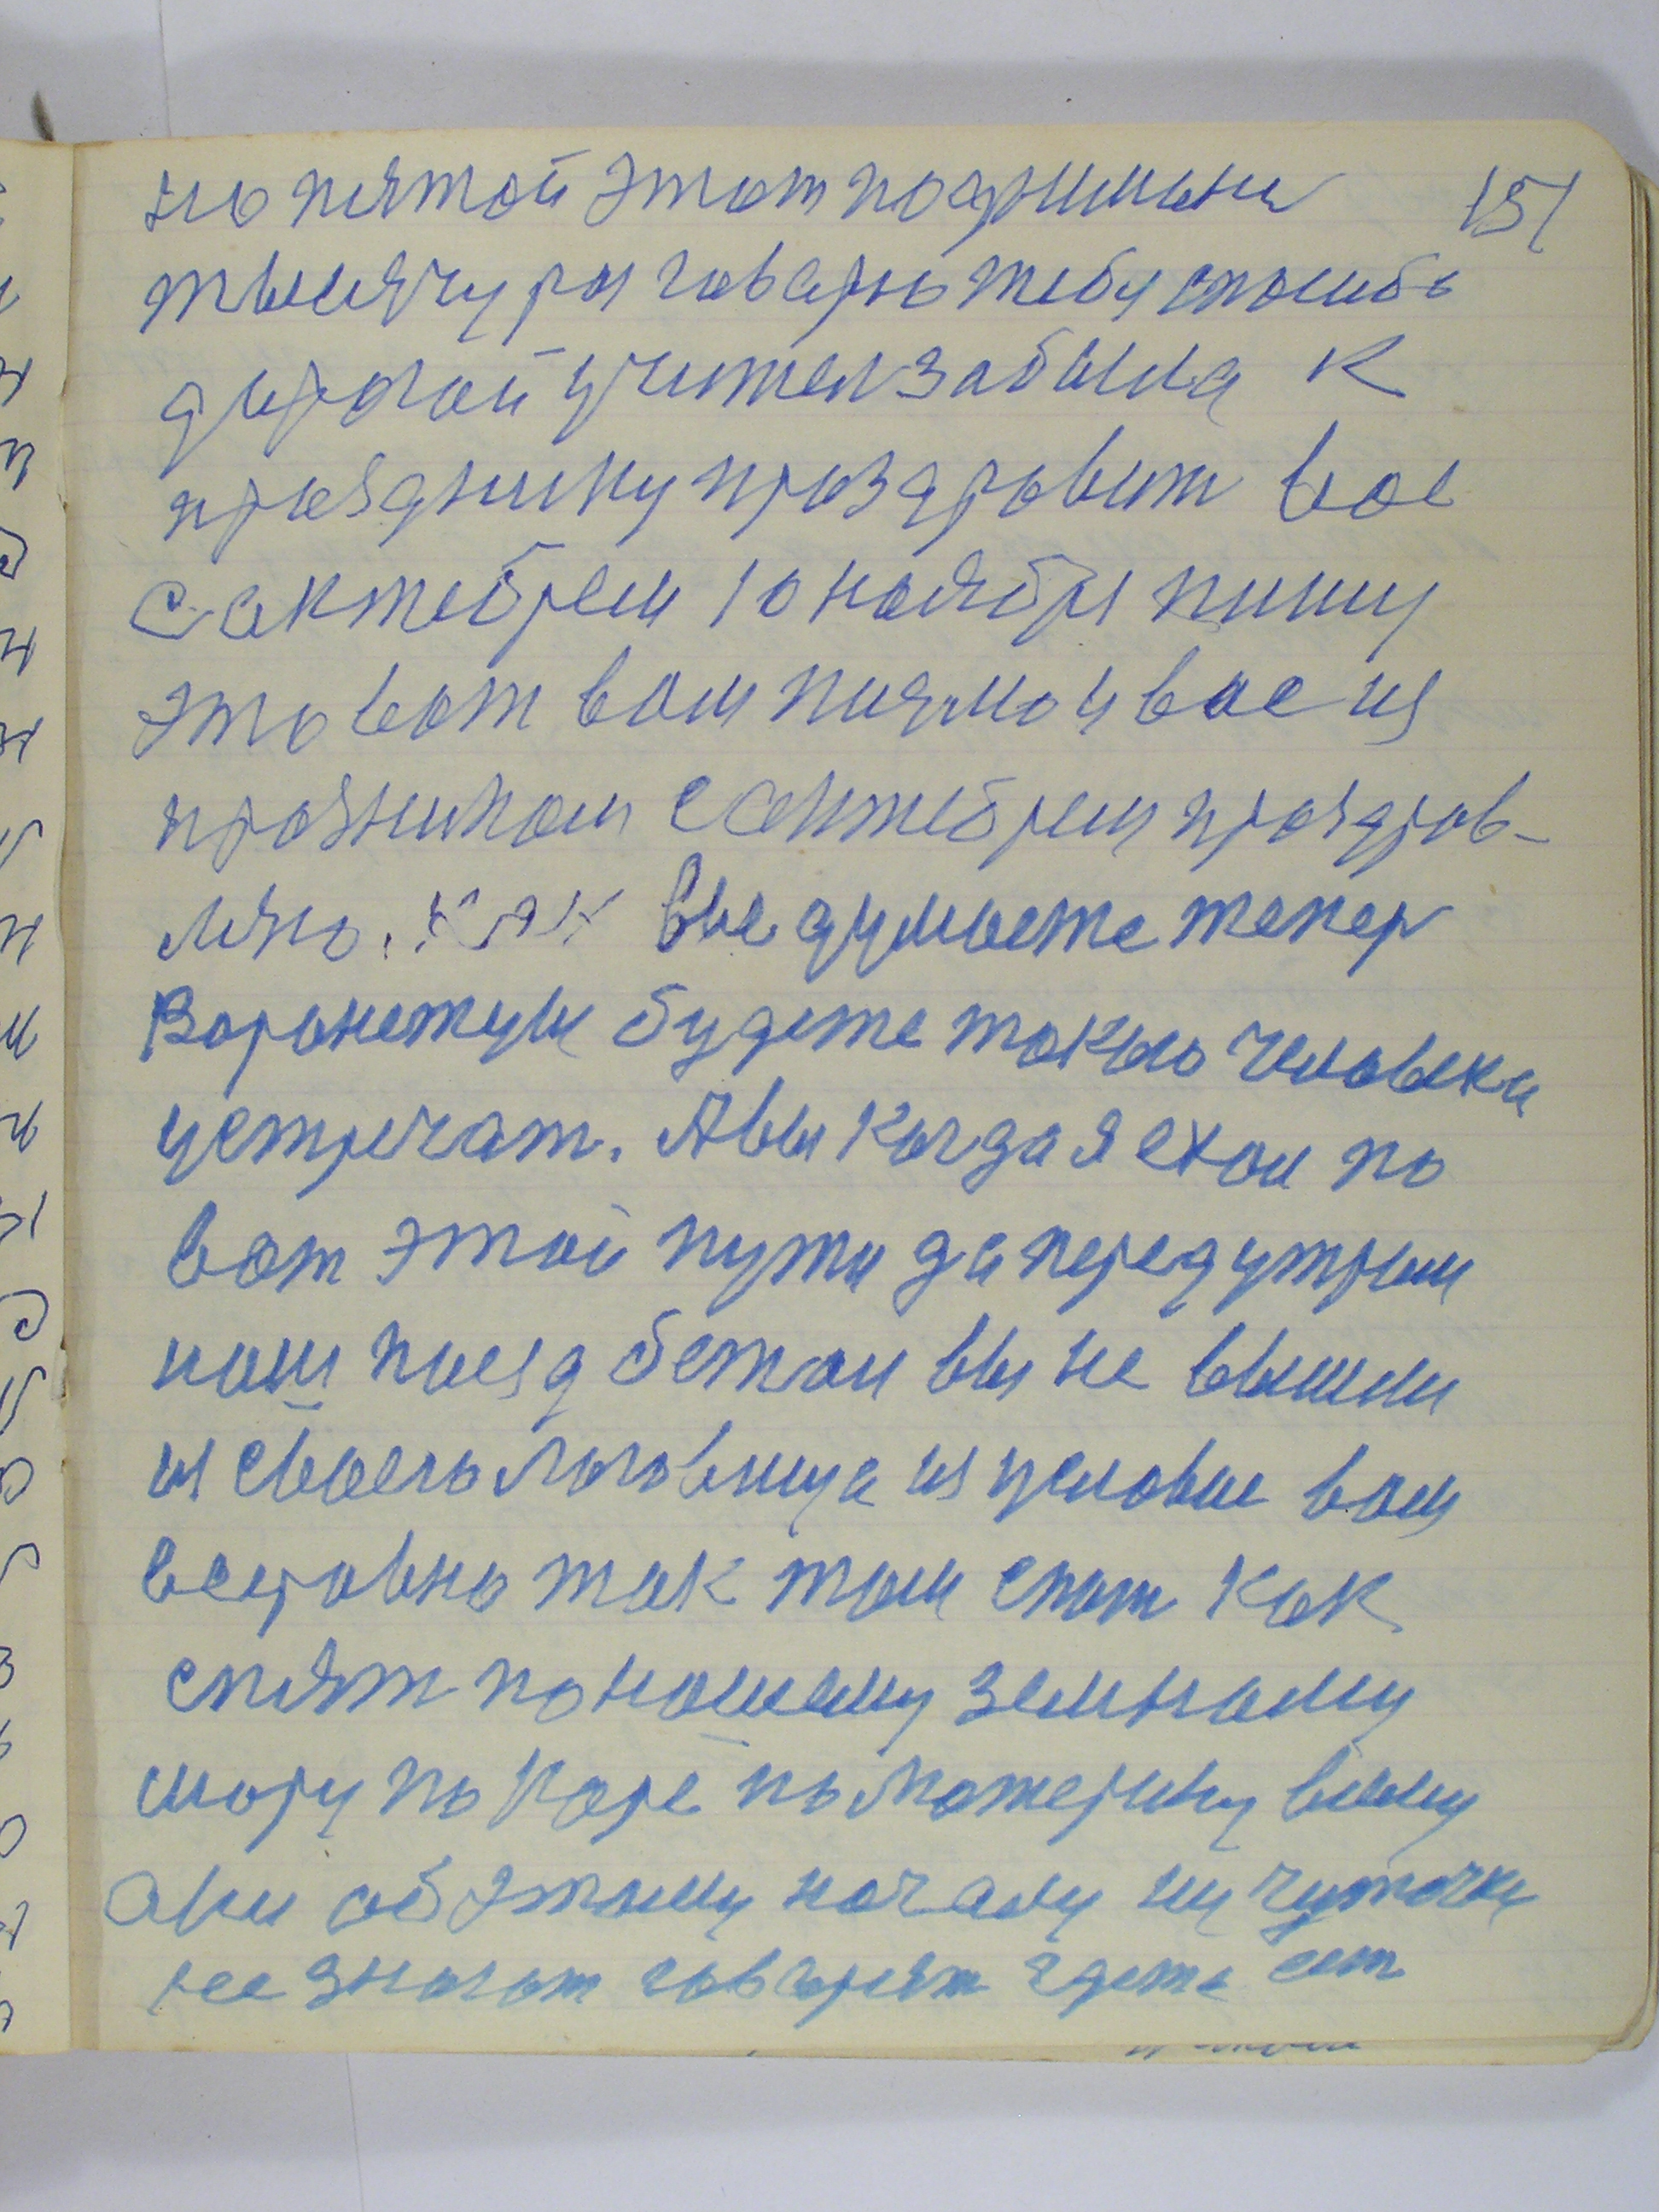 151
но пятой этот поднимына
тысячу раз говарю тебя спасибо
дарагой учител забыла к
празднику праздравит вас
с актебрем 10 ноября пишу
это вот вам писмо и вас из
празником с Октебрем праздрав-
ляю. как вы думаете тепер
Воронежцы будете такого человека
устречат. А вы когда я ехал по
вот этой пути да перед утрим
наш поезд бежал вы не вышли
из своего логовища из условие вам
всеровно так там спат как
спят по нашему земному
шару по коре по материку всему
они об этому началу ни чуточки
не знают говарят где то ест